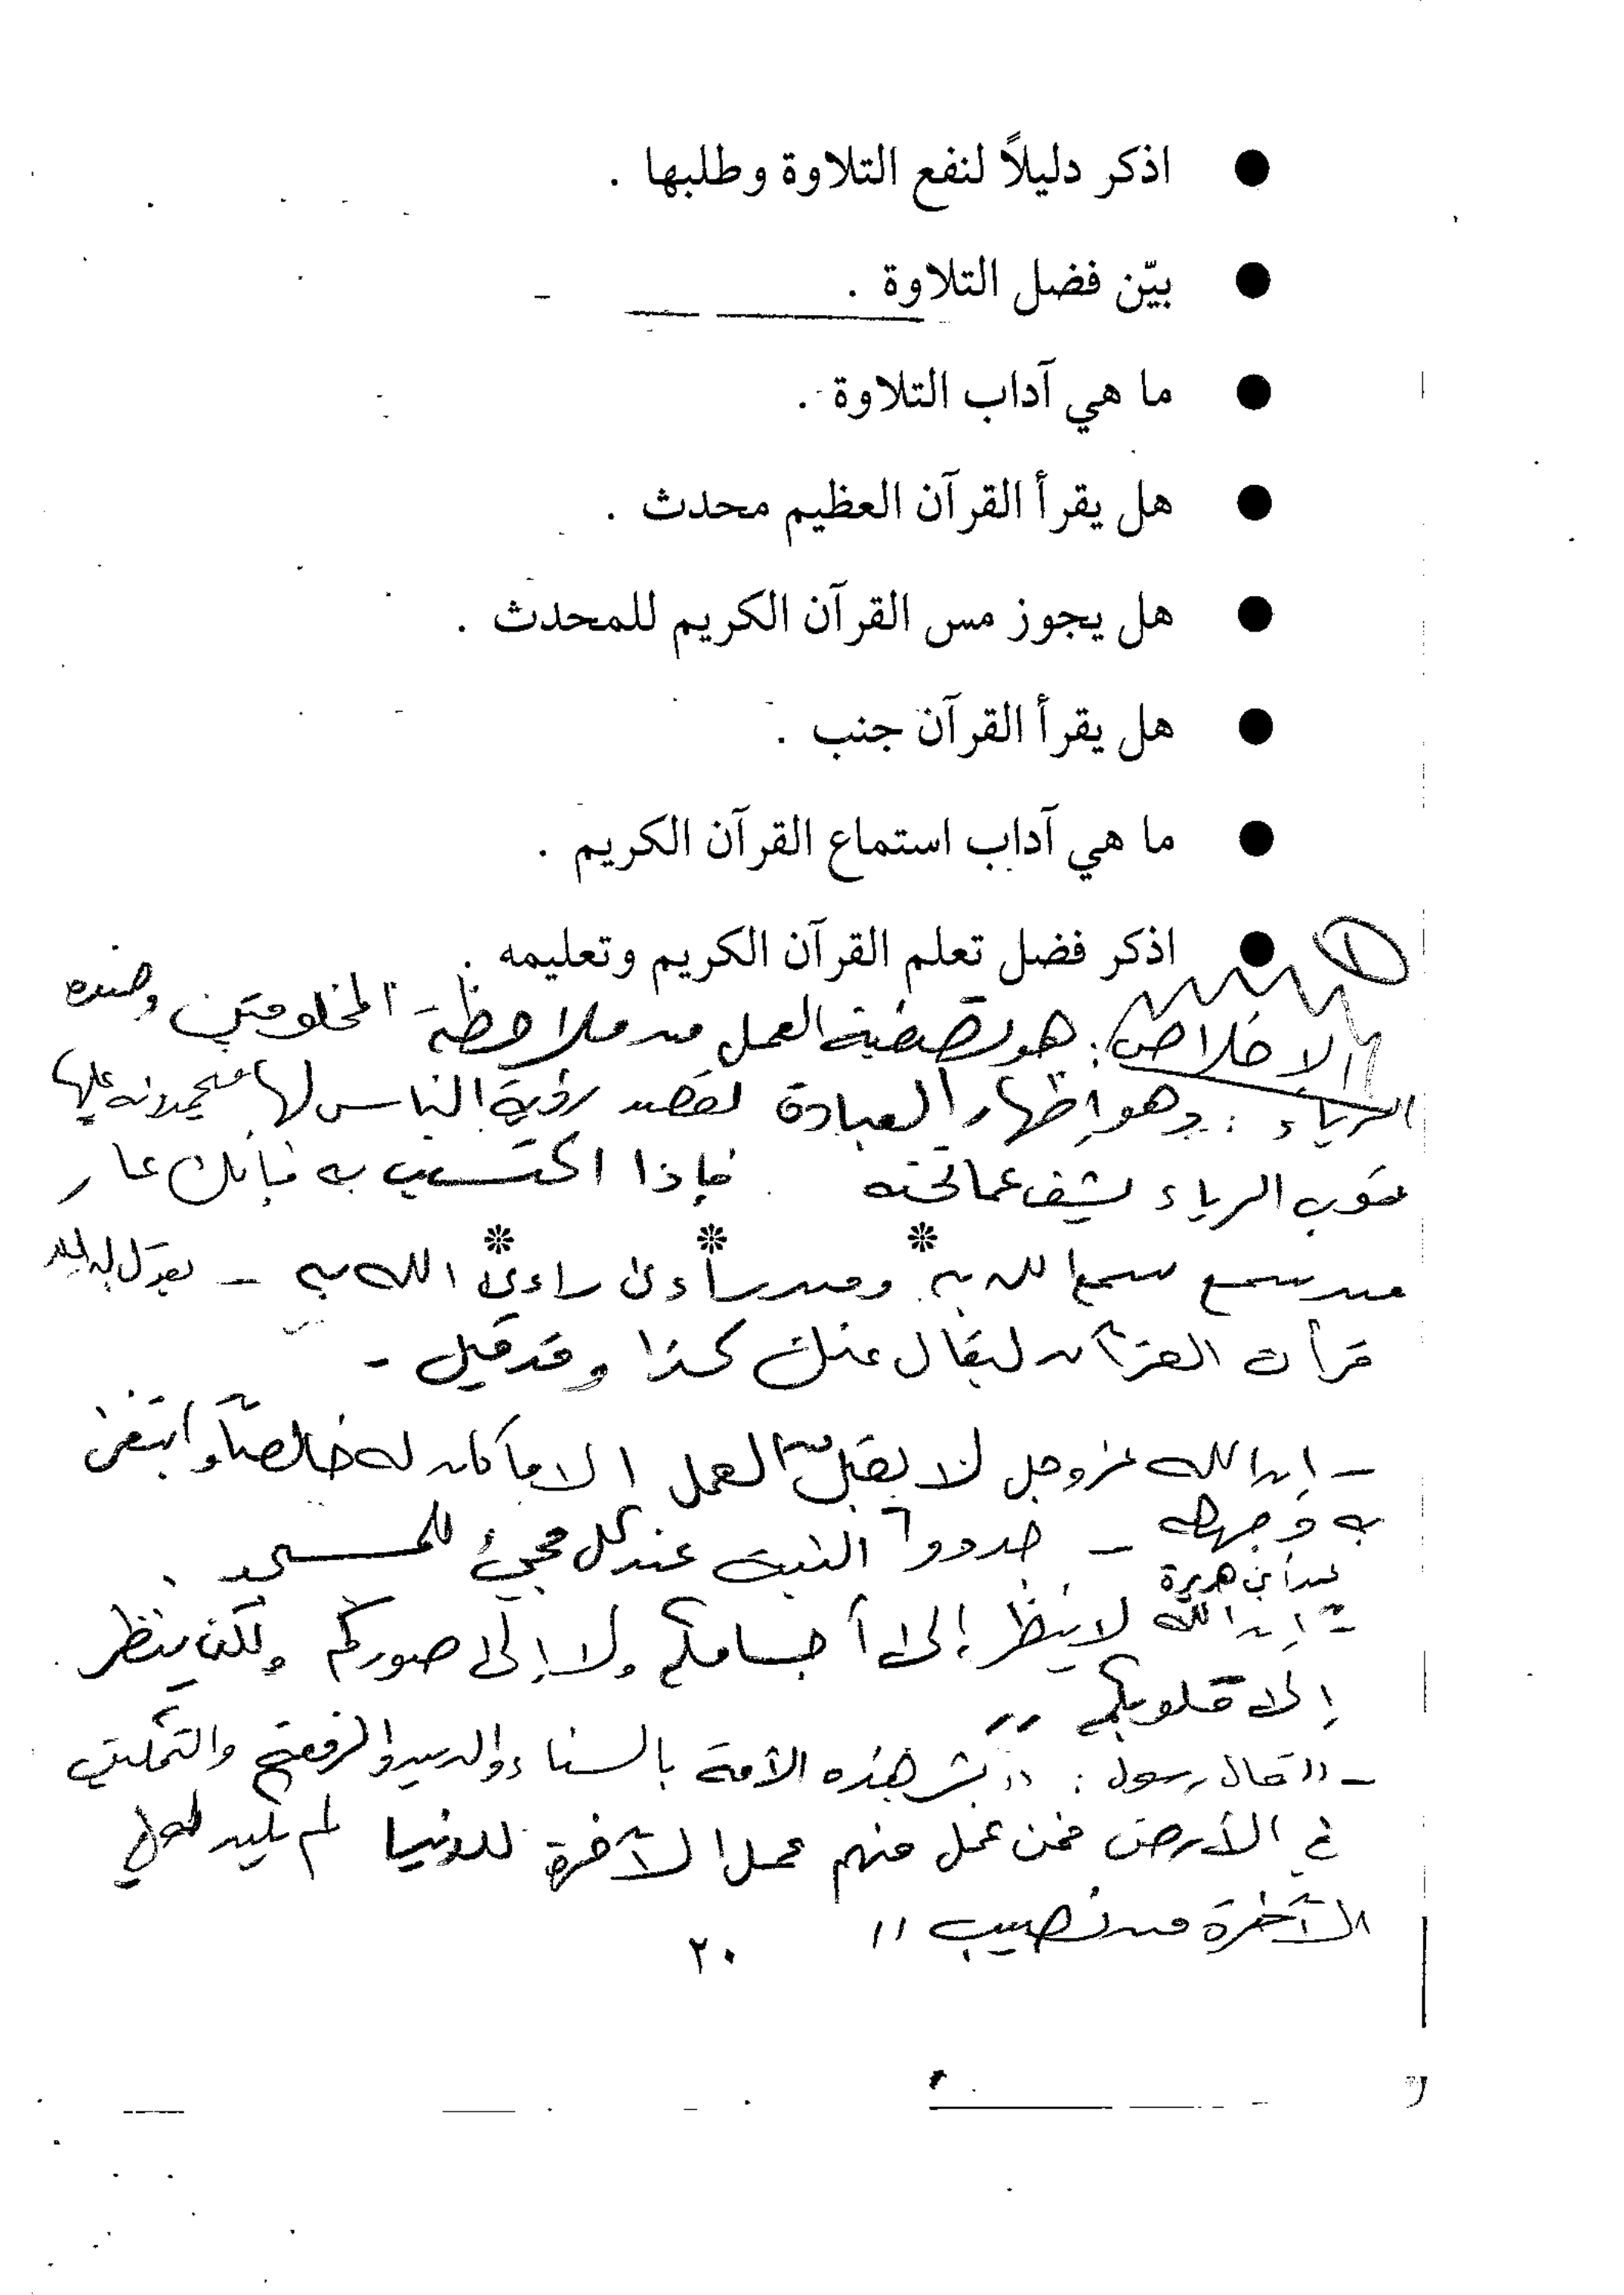 ● اذكر دليلاً لنفع التلاوة وطلبها .
● بيّن فضل التلاوة .
● ما هي آداب التلاوة .
● هل يقرأ القرآن العظيم محدث .
● هل يجوز مس القرآن الكريم للمحدث .
● هل يقرأ القرآن جنب .
● ما هي آداب استماع القرآن الكريم .
① ● اذكر فضل تعلم القرآن الكريم وتعليمه .
الاخلاص : هو تصفية العمل من ملاحظة المخلوقين وضده
الرياء : وهو إظهار العبادة لقصد رؤية الناس لها فيحمدونه عليها
ثوب الرياء يشف عما تحته فإذا اكتسيت به فإنك عار
* * *
من سمع سمع الله به ومن راءى راءى الله به – يقول له
قرأت القرآن ليقال عنك كذا وقد قيل -
– إن الله عز وجل لا يقبل من العمل إلا ما كان له خالصاً وابتغى
به وجهه – جددوا النية عند كل مجيئ للمسجد .
عن أبي هريرة
– إن الله لا ينظر إلى أجسامكم ولا إلى صوركم ولكن ينظر
إلى قلوبكم "
– " قال رسول : " بشر هذه الأمة بالسناء والدين والرفعة والتمكين
في الأرض فمن عمل منهم عمل الآخرة للدنيا لم يكن له في
الآخرة من نصيب "
٢٠